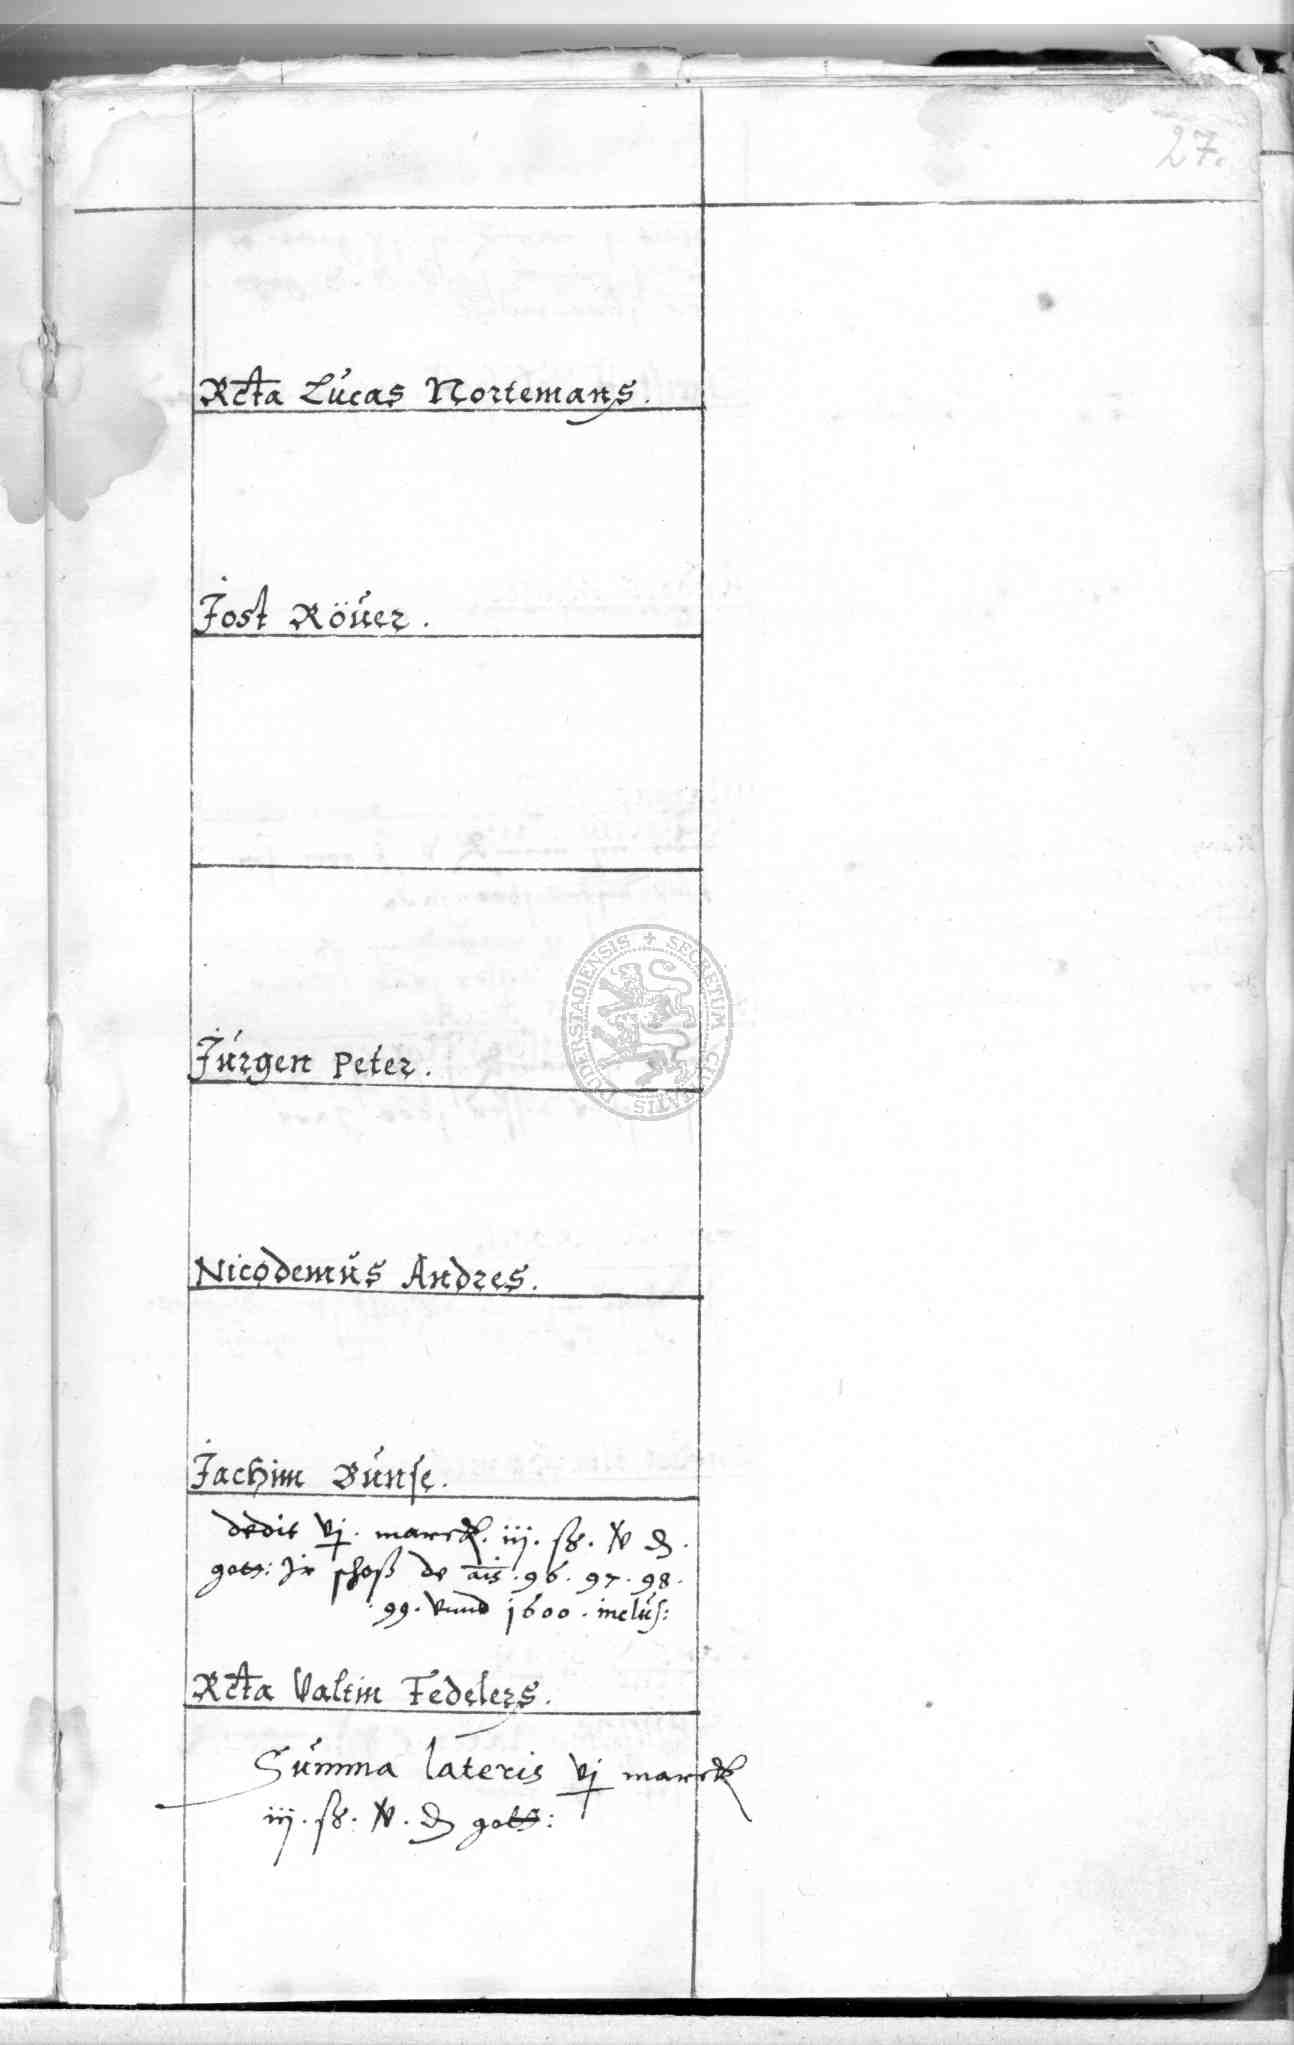 27.
Rcta Lucas Nortemans.
Jost Röuer.
Jürgen Peter.
Nicodemus Andres.
Jachim Bunse.
dedit vj. marck. iij. ß. iv ₰.
gott: Jr schoß de ais. 96. 97. 98.
99. vnnd 1600. inclus:
Rcta Valtin Fedelers.
Summa lateris vj marck
iij. ß: iv. ₰ gott:
SECRETUM CIVITATIS DUDERSTADIENSIS